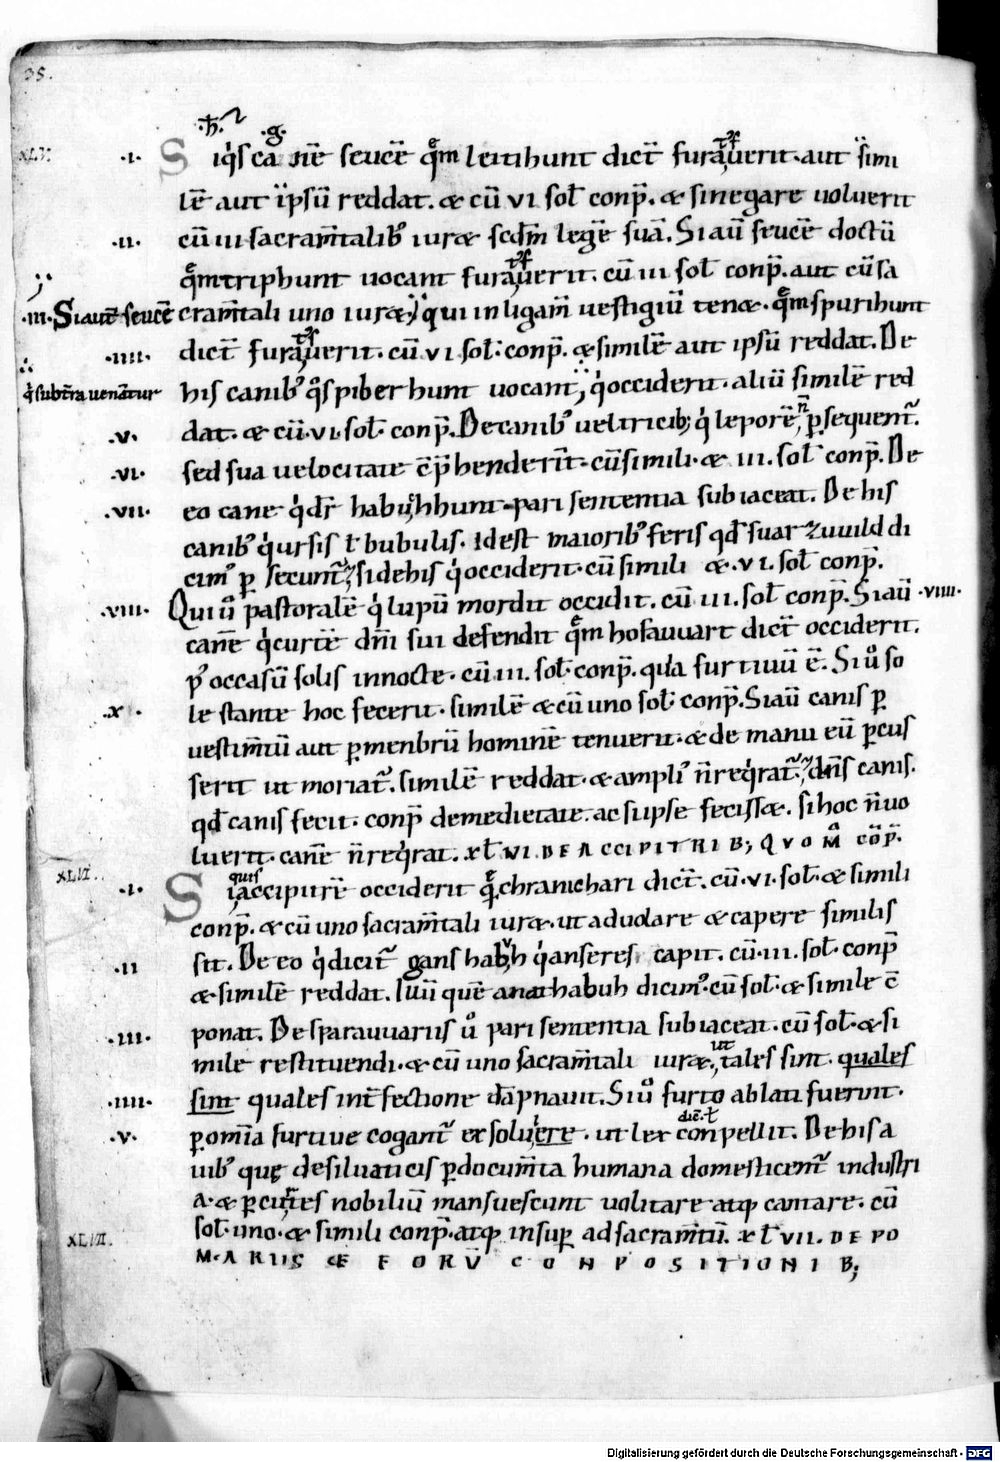 35.
·h̄· ·g·
XLV. ·i· Siq̇s canē seucē quē̄m leitihunt dicт̄ furauerit. aut simi
lē aut ipsū reddat. & cū vi sol̄ conp̄. & si negare uoluerit
·ii· cū iii sacram̄talib; iur& scdm̄ legē suā. Siaū seucē doctū
quē̄m triphunt uocant furauerit. cū iii sol̄ conp̄. aut cū sa
·iii· Siaut seucē cram̄tali uno iur& qui in ligam̄ uestigiū ten&. quē̄m spurihunt
·iiii· dict̄ furauerit. cū vi sol̄. conp̄. & similē aut ipsū reddat. De
q̇ subt̄ra uenāntur his canib; q̊s piberhunt uocant, q̇ occiderit. aliū similē red
·v· dat. & cū. vi. sol̄. conp̄. De canib; ueltricib; q̇ leporē n̄ p̱sequent̄.
·vi· sed sua uelocitate c̄p̄henderit̄. cū simili. & iii. sol̄ conp̄. De
·vii· eo cane q̇ dr̄ habuhhunt pari sententia subiaceat. De his
canib; q̇ ursis t̄ bubulis. Id est maiorib; feris qd̄ suarzuuild di
cim; p̱ secunt̄, si de his q̇ occiderit. cū simili & .vi. sol̄ conp̄.
·viii· Qui ū pastoralē q̇ lupū mordit occidit. cū iii. sol̄ conp̄. Siaū ·viiii·
canē q̇ curtē dn̄i sui defendit quē̄m hofauuart dict̄ occiderit.
p; occasū solis in nocte. cū iii. sol̄. conp̄. quia furtiuū ē. Si ů so
·x· le stante hoc fecerit. similē & cū uno sol̄. conp̄. Siaū canis p̱
uestim̄tū aut p̱ menbrū hominē tenuerit. & de manu eū p̱cus
serit ut moriat̄. similē reddat. & ampli; n̄ req̇rat̄. dn̄s canis.
qd̄ canis fecit. conp̄ de medietate. ac si ipse feciss&. si hoc n̄ uo
luerit. canē n̄ req̇rat. xl̄vi. DE ACCIPITRIB; QVOM̄ CŌP̄.
XLVI. ·i· Si quis accipitrē occiderit quē̄ chranichari dict̄. cū. vi. sol̄. & simili
conp̄. & cū uno sacram̄tali iur&. ut ad uolare & capere similis
·ii sit. De eo q̇ dicit̄ ganshabuh q̇ anseres capit. cū. iii. sol̄. conp̄
& similē reddat. Illū quē anathabuh dicim; cū sol̄. & simile c̄
·iii· ponat. De sparauuariis ů pari sententia subiaceat. cū sol̄. & si
mile restituendi. & cū uno sacram̄tali iur&. ut tales sint. quales
·iiii· sint quales int̄fectione dāpnauit. Si ů furto ablati fuerint.
·v· p̱ om̄ia furtiue cogant̄ exsoluere. ut lex dic̄t conpellit. De his a
uib; quę de siluaticis p̱ docum̄ta humana domesticent̄ industri
a. & p̱ curtes nobiliū mansuescunt uolitare atq; cantare. cū
XLVII. sol̄. uno. & simili conp̄. atq; insup̱ ad sacram̄tū. xl̄vii. DE PO
MARIIS & EORŪ CONPOSITIONIB;
Digitalisierung gefördert durch die Deutsche Forschungsgemeinschaft - DFG